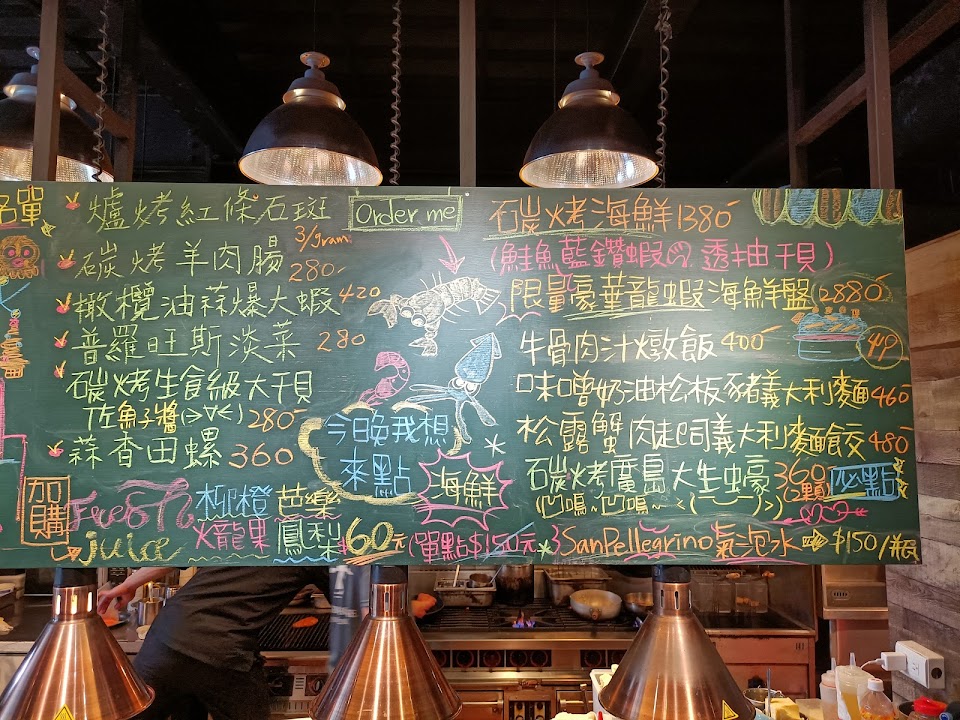 名單
爐烤紅條石斑 3/gram
碳烤羊肉腸 280-
橄欖油蒜爆大蝦 420
普羅旺斯淡菜 280
碳烤生食級大干貝
佐魚子醬(>∀<) 280-
蒜香田螺 360
加購
Fresh
juice
柳橙 芭樂
火龍果 鳳梨 $60元 (單點$150元)
Order me
今晚我想
來點
海鮮
碳烤海鮮 1380-
(鮭魚 藍鑽蝦 透抽 干貝)
限量豪華龍蝦海鮮盤 (2880-
牛骨肉汁燉飯 400-
味噌奶油松板豬義大利麵 460-
松露蟹肉起司義大利麵餃 480-
碳烤廣島大生蠔 360- (2顆) 必點
(凹嗚~凹嗚~
SanPellegrino氣泡水 ➡ $150/瓶